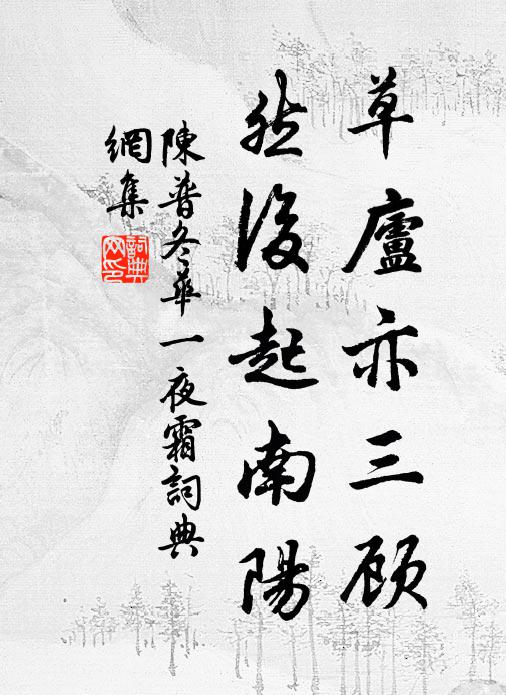 草廬亦三顾
然後起南陽
陳普冬華一夜霜詞典
網集
詞典
网印